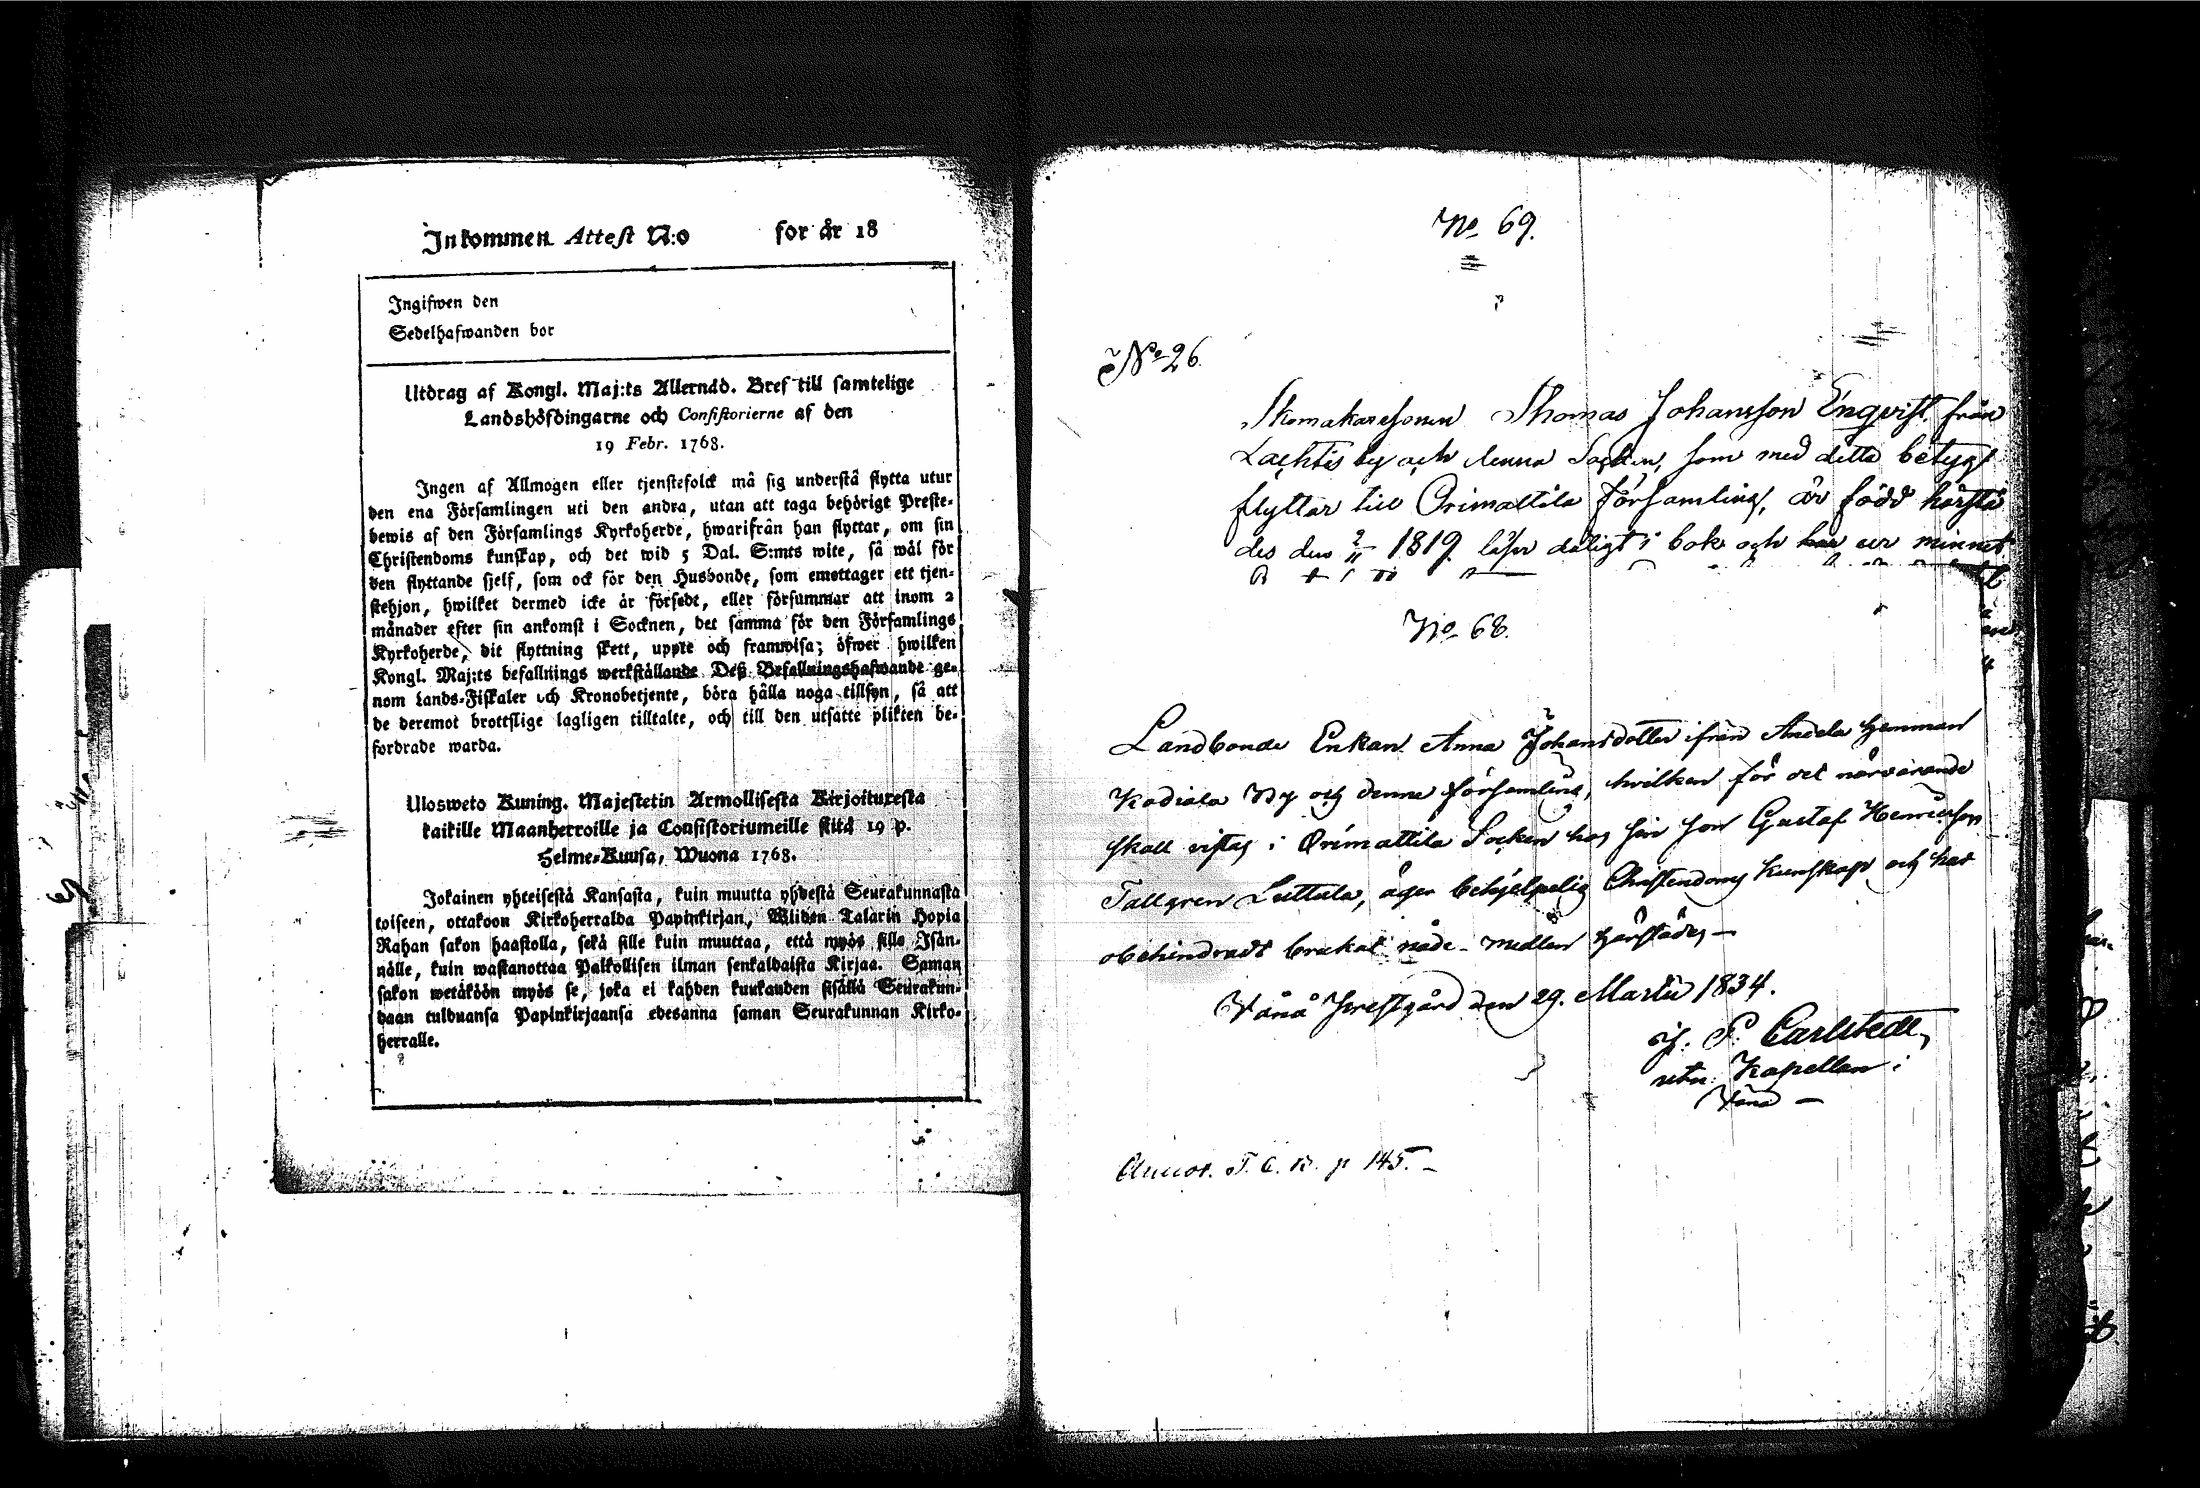 Inkommen Attest N:o for år 18
Ingifwen den
Sedelhafwanden bor
Utdrag af Kongl. Maj:ts Allernåd. Bref till samtelige
Landshöfdingarne och Consistorierne af den
19 Febr. 1768.
Ingen af Allmogen eller tjenstefolck må sig understå flytta utur
den ena Församlingen uti den andra, utan att taga behörigt Preste-
bewis af den Församlings Kyrkoherde, hwarifrån han flyttar, om sin
Christendoms kunskap, och det wid 5 Dal. S:mts wite, så wäl för
den flyttande sjelf, som ock för den Husbonde, som emottager ett tjen-
stehjon, hwilket dermed icke är försedt, eller försummar att inom 2
månader efter sin ankomst i Socknen, det samma för den Församlings
Kyrkoherde, dit flyttning skett, uppte och framwisa; öfwer hwilken
Kongl. Maj:ts befallnings werkställande Deß Befallningshafwande ge-
nom Lands-Fiskaler och Kronobetjente, böra hålla noga tillsyn, så att
de deremot brottslige lagligen tilltalte, och till den utsatte plikten be-
fordrade warda.
Ulosweto Kuning. Majestetin Armollisesta Kirjoituxesta
kaikille Maanherroille ja Consistoriumeille siitä 19 p.
Helme-Kuusa, Wuona 1768.
Jokainen yhteisestä Kansasta, kuin muutta yhdestä Seurakunnasta
toiseen, ottakoon Kirkoherralda Papinkirjan, Wiiden Talarin Hopia
Rahan sakon haastolla, sekä sille kuin muuttaa, että myös sille Isän-
nälle, kuin wastanottaa Palkollisen ilman senkaldaista Kirjaa. Saman
sakon wetäköön myös se, joka ei kahden kuukauden sisällä Seurakun-
daan tulduansa Papinkirjaansa edesanna saman Seurakunnan Kirko-
herralle.
No 69.
No 26
Skomakaresonen Thomas Johansson Enqvist från
Lachtis by och denna Socken, som med detta betyg
flyttar till Orimattila Församling, är född härstä
des den 2/11 1819 läser dåligt i bok och har ur minnet
No 68.
Landbonde Enkan Anna Johansdotter ifrån Andela Hemman
Kodiala By och denne församling, hvilken för det närvarande
skall vistas i Orimattila Socken hos sin son Gustaf Henricsson
Tallgren Luttula, äger behjelpelig Christendoms Kunskap och har
obehindradt brukat nåde-medlen härstädes –
Vånå Prestgård den 29. Martii 1834.
J. P. Carlstedt,
Kapellan i
Vånå –
Annot. T. C. B. p 145. –